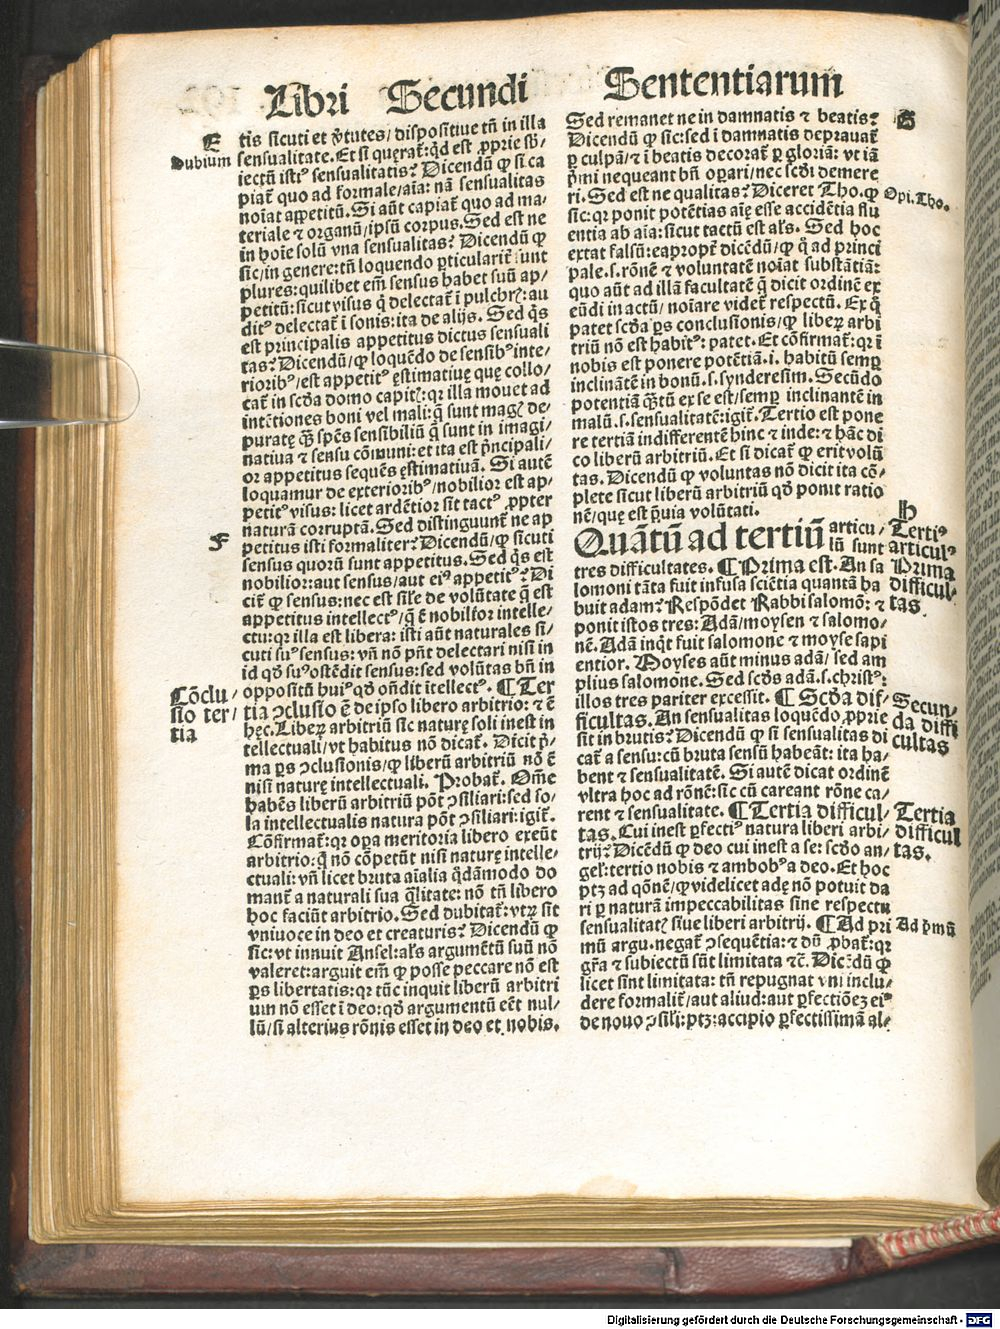 Libri Secundi Sententiarum
E
Dubium
tis sicuti et v̓tutes/ dispositiue tñ in illa
sensualitate. Et si quęrat᷑: qd̓ est ꝓprie sb̓/
iectū istiꝰ sensualitatis? Dicendū ꝙ si ca
piat᷑ quo ad formale/aīa: nā sensualitas
noīat appetitū. Si aūt capiat᷑ quo ad ma/
teriale ⁊ organū/ipsū corpus. Sed est ne
in hoīe solū vna sensualitas? Dicendū ꝙ
sic/in genere: tñ loquendo ꝑticularit᷑ sunt
plures: quilibet em̄ sensus habet suū ap/
petitū: sicut visus q̓ delectat᷑ ī pulchrꝭ: au
ditꝰ delectat᷑ ī sonis: ita de alijs. Sed q̓s
est principalis appetitus dictus sensuali
tas? Dicendū/ꝙ loquēdo de sensibꝰ inte/
rioribꝰ/est appetitꝰ ęstimatiuę quę collo/
cat᷑ in scd̓a domo capitꝭ: qꝛ illa mouet ad
intētiones boni vel mali: q̄ sunt magꝭ de/
puratę q̄ꝫ spēs sensibiliū q̄ sunt in imagi/
natiua ⁊ sensu cōmuni: et ita est p̓ncipali/
or appetitus sequēs ęstimatiuā. Si autē
loquamur de exterioribꝰ/nobilior est ap/
petitꝰ visus: licet ardētior sit tactꝰ ꝓpter
naturā corruptā. Sed distinguunt᷑ ne ap
F
petitus isti formaliter? Dicendū/ꝙ sicuti
sensus quorū sunt appetitus. Sed q̓s est
nobilior: aut sensus/aut eiꝰ appetitꝰ? Di
cit᷑ ꝙ sensus: nec est sil̓e de volūtate q̄ est
appetitus intellectꝰ/q̄ ē nobilior intelle/
ctu: qꝛ illa est libera: isti aūt naturales si/
cuti suꝰ sensus: vñ nō pñt delectari nisi in
id qd̓ suꝰ ostēdit sensus: sed volūtas bñ in
oppositū huiꝰ qd̓ oñdit ītellectꝰ. ¶ Ter
Cōclu/
sio ter/
tia
tia ꝯclusio ē de ipso libero arbitrio: ⁊ ē
hęc. Liberꝝ arbitriū sic naturę soli inest in
tellectuali/vt habitus nō dicat᷑. Dicit p̓/
ma ꝑs ꝯclusionis/ꝙ liberū arbitriū nō ē
nisi naturę intellectuali. Probat᷑. Om̄e
habēs liberū arbitriū pōt ꝯsiliari: sed so/
la intellectualis natura pōt ꝯsiliari: igit᷑.
Cōfirmat᷑: qꝛ oꝑa meritoria libero exeūt
arbitrio: q̄ nō cōpetūt nisi naturę intelle/
ctuali: vñ licet bruta aīalia q̄dāmodo do
mant᷑ a naturali sua q̄litate: nō tñ libero
hoc faciūt arbitrio. Sed dubitat᷑: vtꝝ sit
vniuoce in deo et creaturis? Dicendū ꝙ
sic: vt innuit Ansel: al̓s argumētū suū nō
valeret: arguit em̄ ꝙ posse peccare nō est
ꝑs libertatis: qꝛ tūc inquit liberū arbitri
um nō esset ī deo: qd̓ argumentū eēt nul/
lū/si alterius rōnis esset in deo et nobis.
G
Sed remanet ne in damnatis ⁊ beatis?
Dicendū ꝙ sic: sed ī damnatis deprauat᷑
ꝑ culpā/⁊ ī beatis decorat᷑ ꝑ gloriā: vt iā
p̓mi nequeant bñ oꝑari/nec scd̓i demere
ri. Sed est ne qualitas? Diceret Tho. ꝙ
Opi. Tho.
sic: qꝛ ponit potētias aīę esse accidētia flu
entia ab aīa: sicut tactū est al̓s. Sed hoc
extat falsū: eapropt᷑ dicēdū/ꝙ q̄ ad princi
pale. s. rōnē ⁊ voluntatē noīat substātiā:
quo aūt ad illā facultatē q̄ dicit ordinē ex
eūdi in actū/noīare videt᷑ respectū. Ex q̊
patet scd̓a ꝑs conclusionis/ꝙ liberꝝ arbi
triū nō est habitꝰ: patet. Et cōfirmat᷑: qꝛ ī
nobis est ponere potētiā. i. habitū semꝑ
inclinātē in bonū. s. synderesim. Secūdo
potentiā q̄ꝫtū ex se est/semꝑ inclinantē in
malū. s. sensualitatē: igit᷑. Tertio est pone
re tertiā indifferentē hinc ⁊ inde: ⁊ hāc di
co liberū arbitriū. Et si dicat᷑ ꝙ erit volū
tas. Dicendū ꝙ voluntas nō dicit ita cō/
plete sicut liberū arbitriū qd̓ ponit ratio
nē/quę est p̓uia volūtati.
h
Quātū ad tertiū articu/
Tertiꝰ
lū sunt
articulꝰ
tres difficultates. ¶ Prima est. An sa
Prima
lomoni tāta fuit infusa sciētia quantā ha
difficul/
buit adam? Respōdet Rabbi salomō: ⁊
tas.
ponit istos tres: Adā/moysen ⁊ salomo/
nē. Adā inq̓t fuit salomone ⁊ moyse sapi
entior. Moyses aūt minus adā/ sed am
plius salomone. Sed scd̓s adā. s. christꝰ:
illos tres pariter excessit. ¶ Scd̓a dif/
Secun/
ficultas. An sensualitas loquēdo ꝓprie
da diffi
sit in brutis? Dicendū ꝙ si sensualitas di
cultas
cat᷑ a sensu: cū bruta sensū habeāt: ita ha/
bent ⁊ sensualitatē. Si autē dicat ordinē
vltra hoc ad rōnē: sic cū careant rōne ca/
rent ⁊ sensualitate. ¶ Tertia difficul/
Tertia
tas. Cui inest ꝑfectiꝰ natura liberi arbi/
difficul
trij? Dicēdū ꝙ deo cui inest a se: scd̓o an/
tas.
gel̓: tertio nobis ⁊ ambobꝰ a deo. Et hoc
ptꝫ ad qōnē/ꝙ videlicet adę nō potuit da
ri ꝑ naturā impeccabilitas sine respectu
sensualitatꝭ siue liberi arbitrij. ¶ Ad pri
Ad p̓mū
mū argu. negat᷑ ꝯsequētia: ⁊ dū ꝓbat᷑: qꝛ
gr̄a ⁊ subiectū sūt limitata ⁊c̄. Dicēdū ꝙ
licet sint limitata: tñ repugnat vni inclu/
dere formalit᷑/aut aliud: aut ꝑfectiōeꝫ eiꝰ
de nouo ꝯsil̓i: ptꝫ: accipio ꝑfectissimā al/
Digitalisierung gefördert durch die Deutsche Forschungsgemeinschaft - DFG